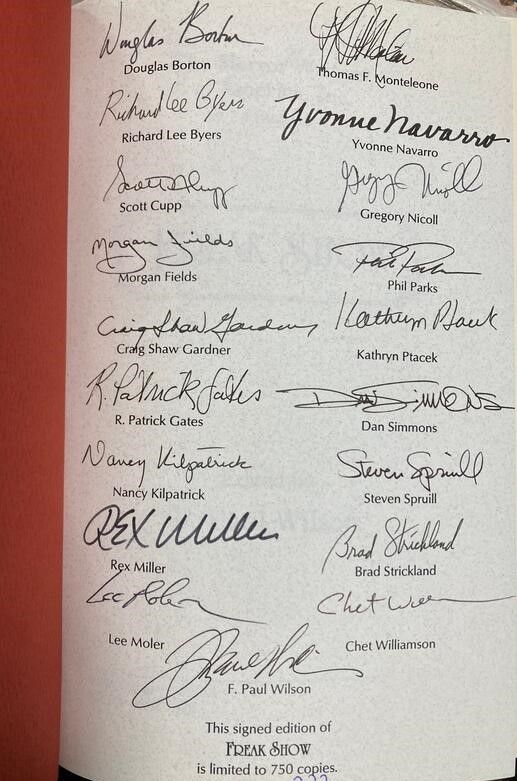 Douglas Borton
Douglas Borton
Thomas F. Monteleone
Richard Lee Byers
Richard Lee Byers
Yvonne Navarro
Yvonne Navarro
Scott Cupp
Scott Cupp
Gregory Nicoll
Morgan Fields
Morgan Fields
Phil Parks
Phil Parks
Craig Shaw Gardner
Craig Shaw Gardner
Kathryn Ptacek
Kathryn Ptacek
R. Patrick Gates
R. Patrick Gates
Dan Simmons
Dan Simmons
Nancy Kilpatrick
Nancy Kilpatrick
Steven Spruill
Steven Spruill
REX Miller
Rex Miller
Brad Strickland
Brad Strickland
Lee Moler
Lee Moler
Chet Williamson
F. Paul Wilson
This signed edition of
FREAK SHOW
is limited to 750 copies.